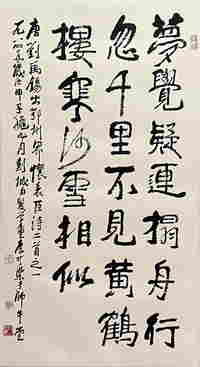 夢覺疑連榻舟行
忽千里不見黃鶴
樓寒沙雪相似
唐劉禹錫出鄂州界懷表臣詩二首之一
歲次甲子